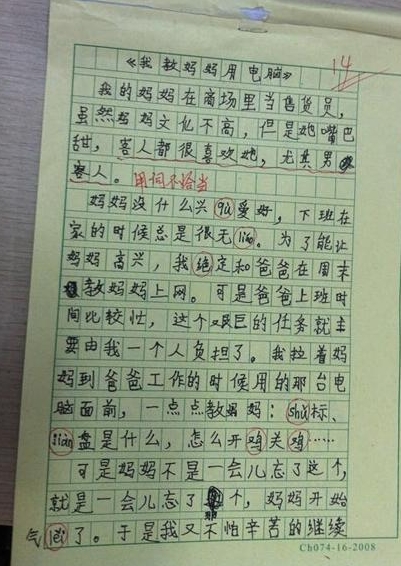 《我教妈妈用电脑》
14
我的妈妈在商场里当售货员,
虽然妈妈文化不高,但是她嘴巴
甜,客人都很喜欢她,尤其男
客人。用词不恰当
妈妈没什么兴qù爱好,下班在
家的时候总是很无liáo。为了能让
妈妈高兴,我绝定和爸爸在周末
教妈妈上网。可是爸爸上班时
间比较忙,这个艰巨的任务就主
要由我一个人负担了。我拉着妈
妈到爸爸工作的时候用的那台电
脑面前,一点点教妈妈:shǔ标、
jiàn盘是什么,怎么开鸡关鸡……
可是妈妈不是一会儿忘了这个,
就是一会儿忘了那个,妈妈开始
气了。于是我又不怕辛苦的继续
Ch074-16-2008